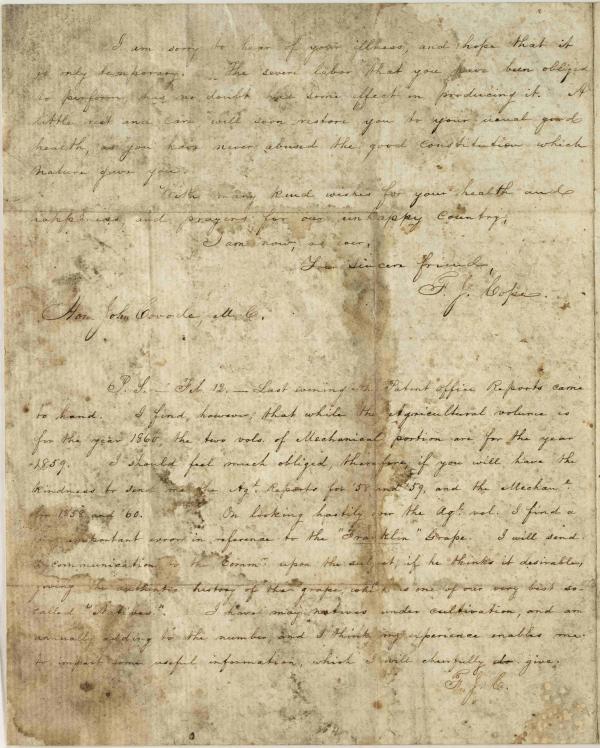 I am sorry to hear of your illness, and hope that it
is only temporary. The seven labor that you have been obliged
to perform, has no doubt has some effect in producing it. A
little rest and care will soon restore you to your usual good
health, as you have never abused the good constitution which
nature gave you.
With many kind wishes for your health and
happiness, and prayers for our unhappy country,
I am now, as ever,
sincere friend,
F. J. Cope.
Hon. John Covode, M. C.
P. S. — Feb. 12. — Last evening the Patent office Reports came
to hand. I find, however, that while the Agricultural volume is
for the year 1860, the two vols. of Mechanical portion are for the year
1859. I should feel much obliged, therefore, if you will have the
kindness to send me the Agl. Reports for '58 and '59, and the Mechanl.
for 1858 and '60. On looking hastily over the Agl. vol. I find a
important error in reference to the "Franklin" Grape. I will send
a communication to the Commr. upon the subject, if he thinks it desirable,
giving the authentic history of the grape, which is one of our very best so-
called "Natives". I have many natives under cultivation, and am
annually adding to the number, and I think my experience enables me
to impart some useful information, which I will cheerfully do give.
F. J. C.